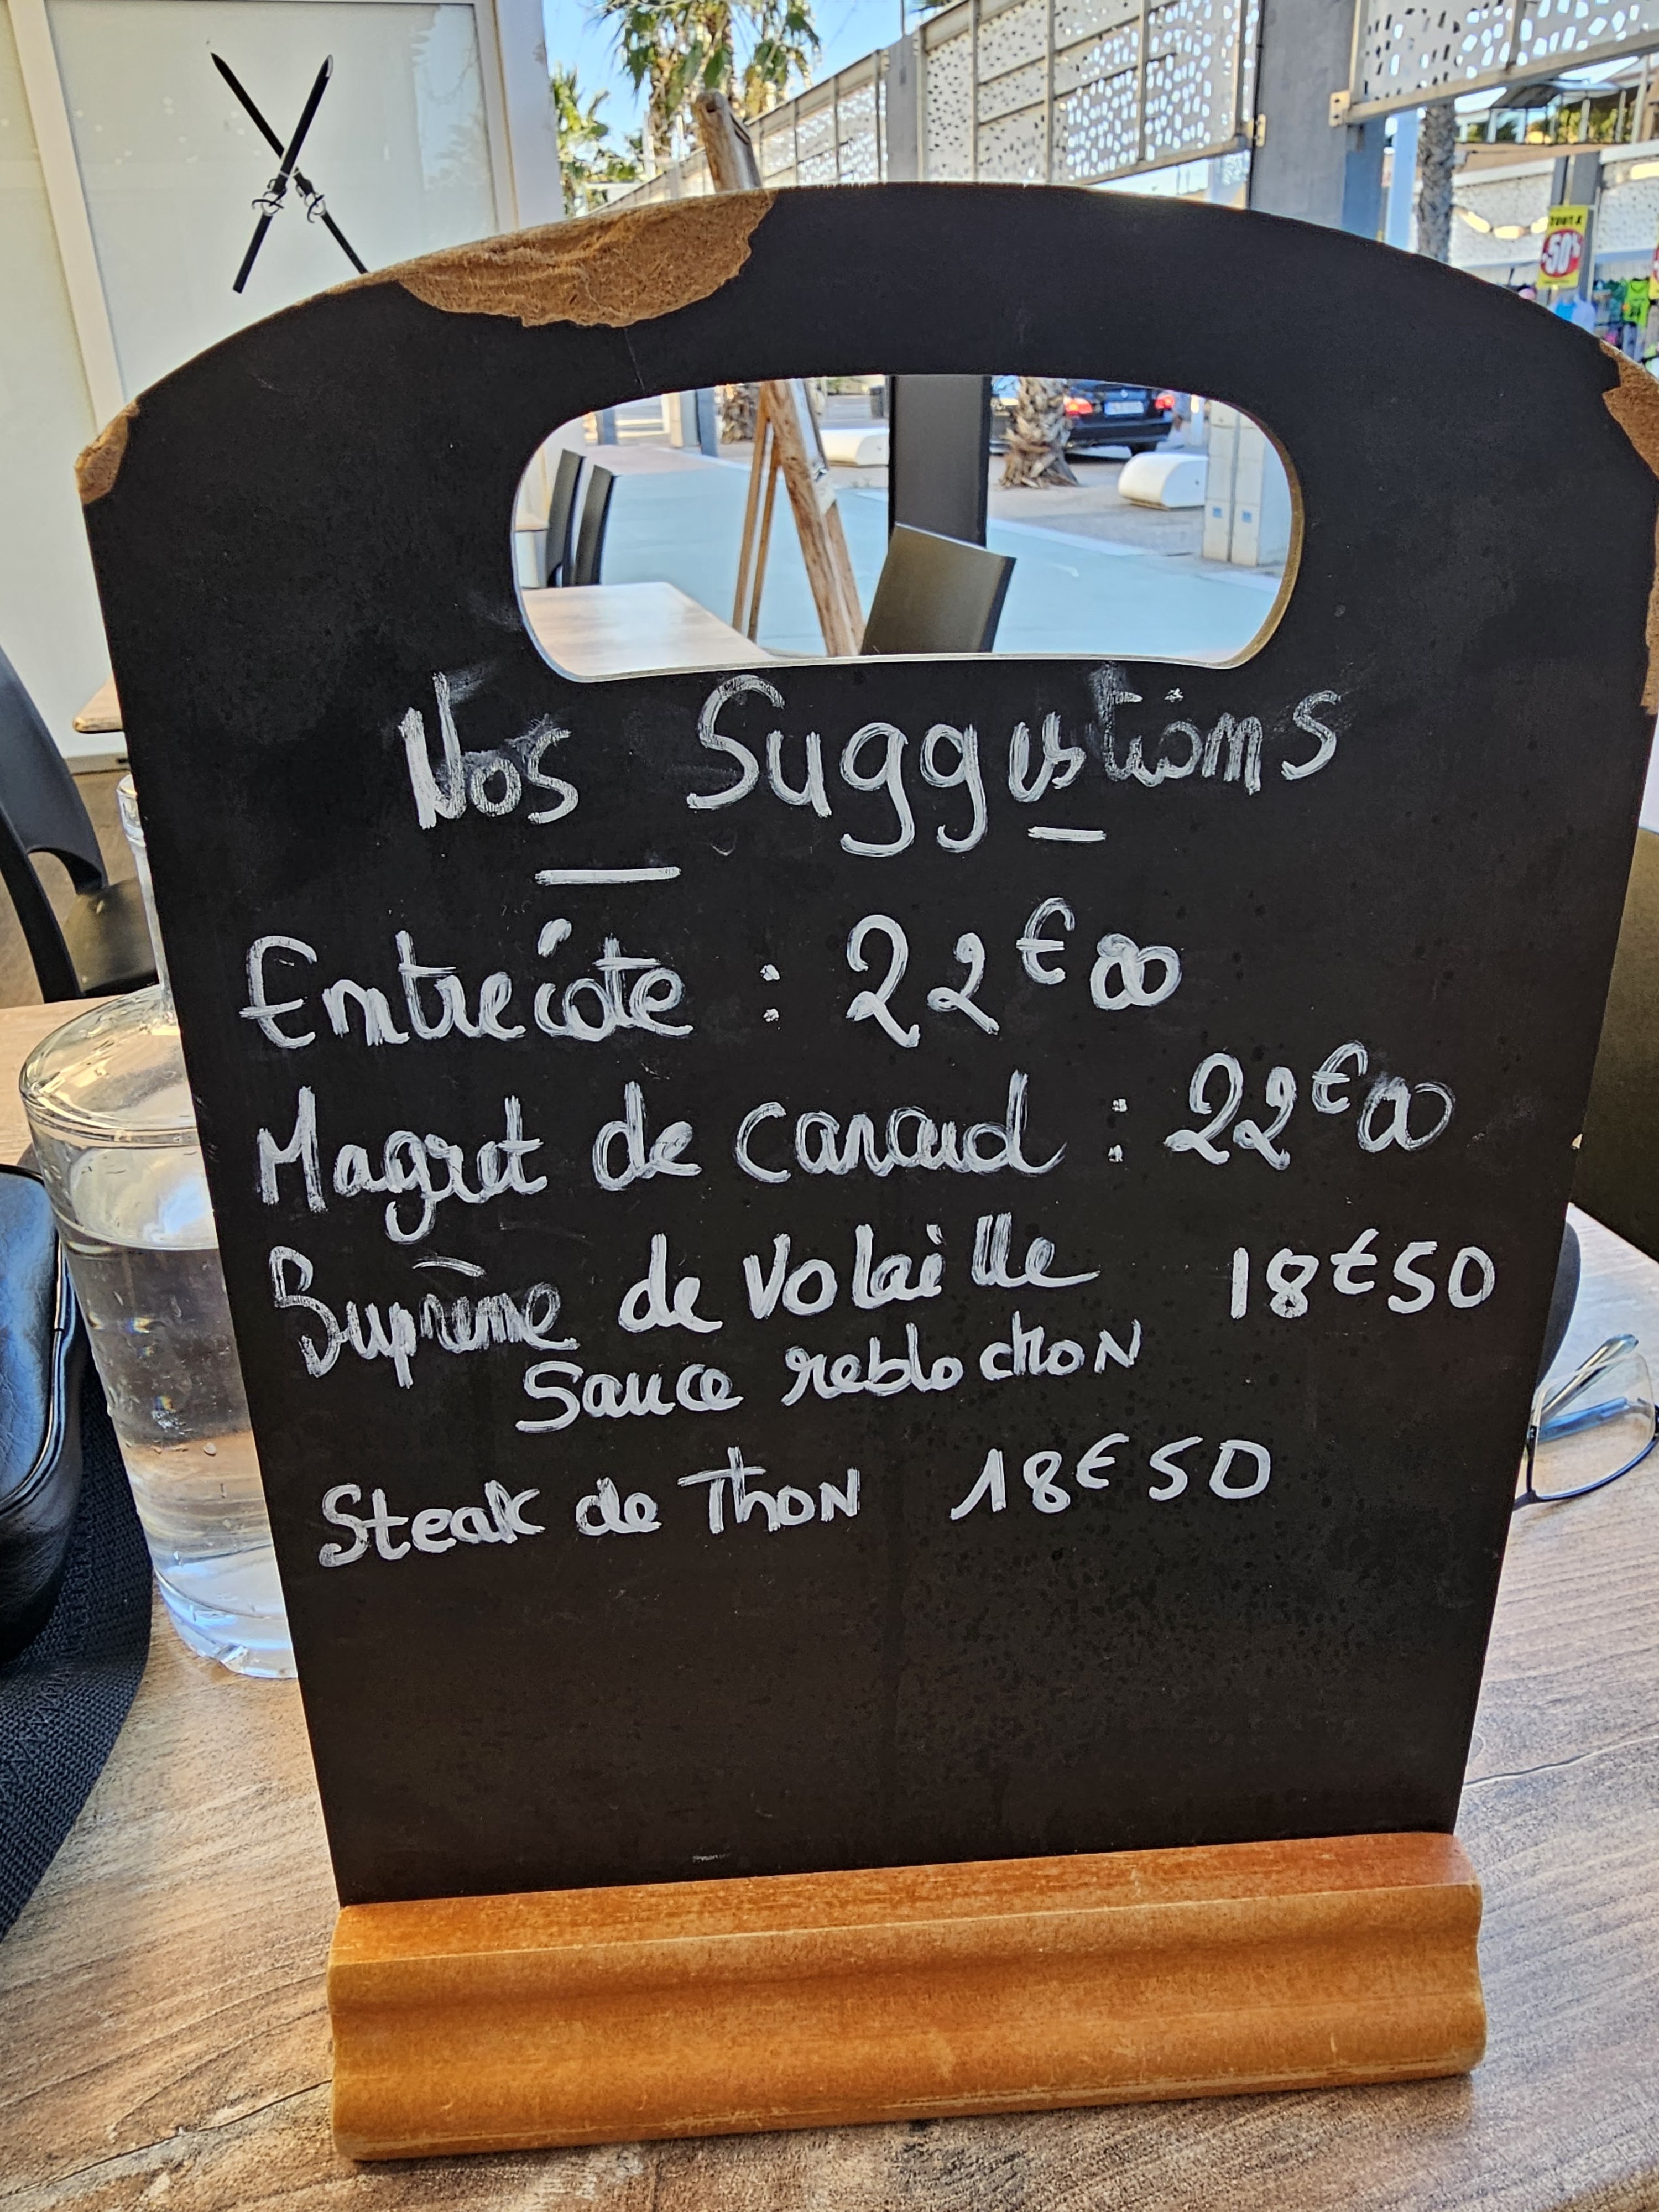 TOUT A
-50%
Nos Suggestions
Entrecôte : 22€00
Magret de canard : 22€00
Suprème de Volaille 18€50
Sauce reblochon
Steak de Thon 18€50